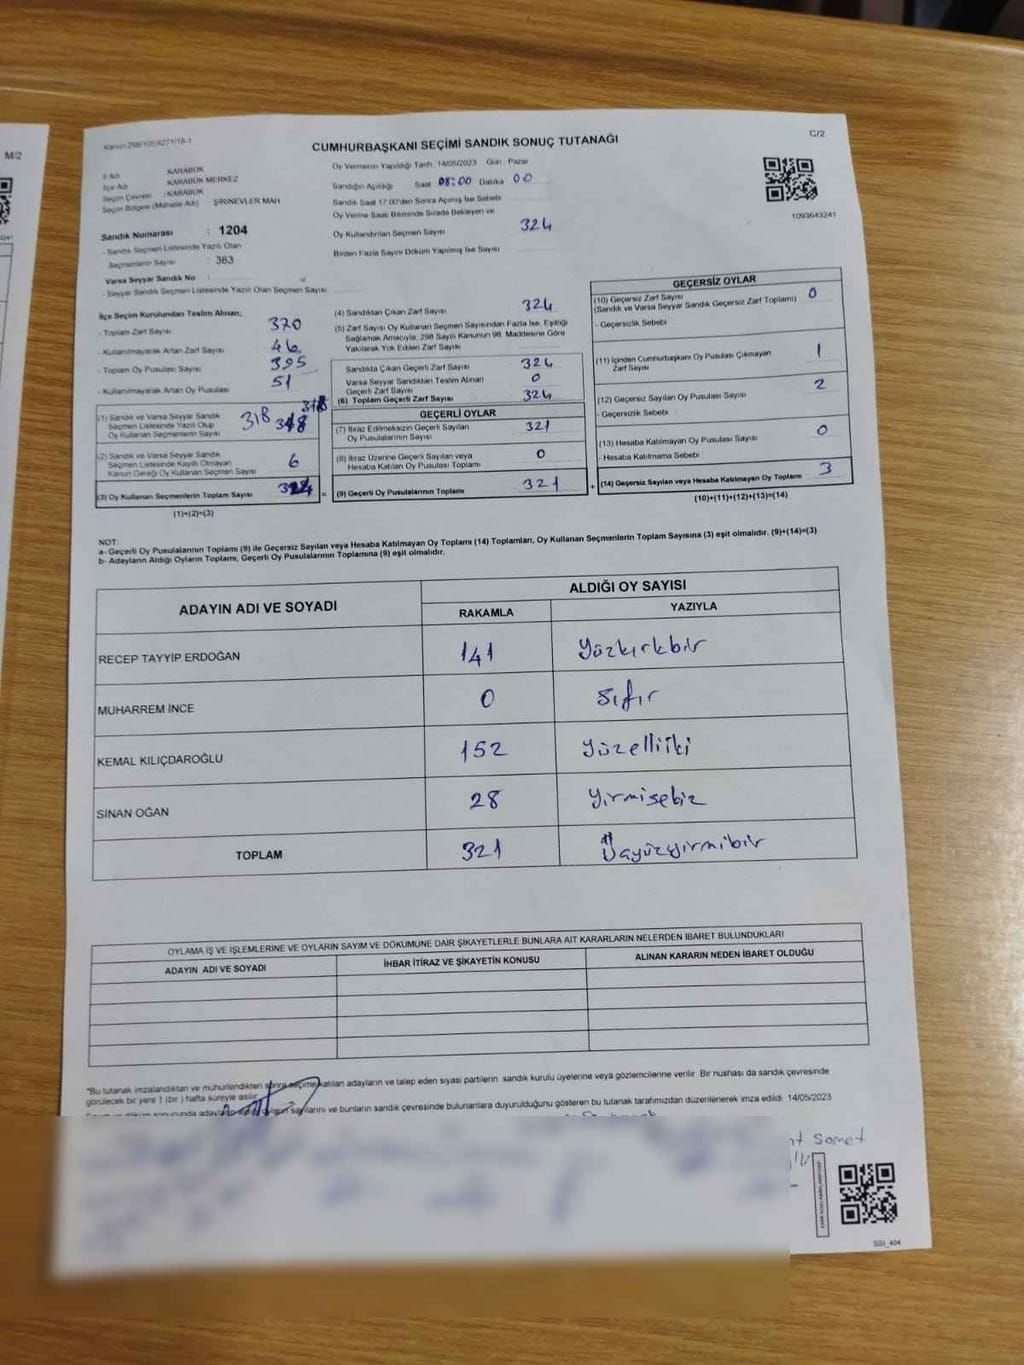 M/2
Kanun 298/105,6271/18-1
CUMHURBAŞKANI SEÇİMİ SANDIK SONUÇ TUTANAĞI
C/2
İl Adı KARABÜK
İlçe Adı KARABÜK MERKEZ
Seçim Çevresi : KARABÜK
Seçim Bölgesi (Mahalle Adı) ŞİRİNEVLER MAH
Sandık Numarası : 1204
- Sandık Seçmen Listesinde Yazılı Olan
Seçmenlerin Sayısı : 363
Varsa Seyyar Sandık No
- Seyyar Sandık Seçmen Listesinde Yazılı Olan Seçmen Sayısı
Oy Vermenin Yapıldığı Tarih 14/05/2023 Gün Pazar
Sandığın Açıldığı Saat 08:00 Dakika 00
Sandık Saat 17:00'den Sonra Açılmış İse Sebebi
Oy Verme Saati Bitiminde Sırada Bekleyen ve
Oy Kullandırılan Seçmen Sayısı 324
Birden Fazla Sayım Döküm Yapılmış İse Sayısı
1093643241
İlçe Seçim Kurulundan Teslim Alınan;
- Toplam Zarf Sayısı 370
- Kullanılmayarak Artan Zarf Sayısı 46
- Toplam Oy Pusulası Sayısı 395
- Kullanılmayarak Artan Oy Pusulası 51
(1) Sandık ve Varsa Seyyar Sandık
Seçmen Listesinde Yazılı Olup
Oy Kullanan Seçmenlerin Sayısı 318 318
(2) Sandık ve Varsa Seyyar Sandık
Seçmen Listesinde Kayıtlı Olmayan
Kanun Gereği Oy Kullanan Seçmen Sayısı 6
(3) Oy Kullanan Seçmenlerin Toplam Sayısı 324 =
(1)+(2)=(3)
(4) Sandıktan Çıkan Zarf Sayısı 324
(5) Zarf Sayısı Oy Kullanan Seçmen Sayısından Fazla İse, Eşitliği
Sağlamak Amacıyla; 298 Sayılı Kanunun 98. Maddesine Göre
Yakılarak Yok Edilen Zarf Sayısı
Sandıkta Çıkan Geçerli Zarf Sayısı 324
Varsa Seyyar Sandıktan Teslim Alınan
Geçerli Zarf Sayısı 0
(6) Toplam Geçerli Zarf Sayısı 324
GEÇERLİ OYLAR
(7) İtiraz Edilmeksizin Geçerli Sayılan
Oy Pusulalarının Sayısı 321
(8) İtiraz Üzerine Geçerli Sayılan veya
Hesaba Katılan Oy Pusulası Toplamı 0
(9) Geçerli Oy Pusulalarının Toplamı 321 +
GEÇERSİZ OYLAR
(10) Geçersiz Zarf Sayısı
(Sandık ve Varsa Seyyar Sandık Geçersiz Zarf Toplamı) 0
- Geçersizlik Sebebi
(11) İçinden Cumhurbaşkanı Oy Pusulası Çıkmayan
Zarf Sayısı 1
(12) Geçersiz Sayılan Oy Pusulası Sayısı 2
- Geçersizlik Sebebi
(13) Hesaba Katılmayan Oy Pusulası Sayısı 0
- Hesaba Katılmama Sebebi
(14) Geçersiz Sayılan veya Hesaba Katılmayan Oy Toplamı 3
(10)+(11)+(12)+(13)=(14)
NOT:
a- Geçerli Oy Pusulalarının Toplamı (9) ile Geçersiz Sayılan veya Hesaba Katılmayan Oy Toplamı (14) Toplamları, Oy Kullanan Seçmenlerin Toplam Sayısına (3) eşit olmalıdır. (9)+(14)=(3)
b- Adayların Aldığı Oyların Toplamı, Geçerli Oy Pusulalarının Toplamına (9) eşit olmalıdır.
ADAYIN ADI VE SOYADI ALDIĞI OY SAYISI
RAKAMLA YAZIYLA
RECEP TAYYİP ERDOĞAN 141 Yüzkırkbir
MUHARREM İNCE 0 Sıfır
KEMAL KILIÇDAROĞLU 152 Yüzelliiki
SİNAN OĞAN 28 Yirmisekiz
TOPLAM 321 Üçyüzyirmibir
OYLAMA İŞ VE İŞLEMLERİNE VE OYLARIN SAYIM VE DÖKÜMÜNE DAİR ŞİKAYETLERLE BUNLARA AİT KARARLARIN NELERDEN İBARET BULUNDUKLARI
ADAYIN ADI VE SOYADI İHBAR İTİRAZ VE ŞİKAYETİN KONUSU ALINAN KARARIN NEDEN İBARET OLDUĞU
*Bu tutanak imzalandıktan ve mühürlendikten sonra seçime katılan adayların ve talep eden siyasi partilerin sandık kurulu üyelerine veya gözlemcilerine verilir. Bir nüshası da sandık çevresinde
görülecek bir yere 1 (bir) hafta süreyle asılır.
Sayım ve döküm sonucunda adayların aldığı oyların sayılarını ve bunların sandık çevresinde bulunanlara duyurulduğunu gösteren bu tutanak tarafımızdan düzenlenerek imza edildi. 14/05/2023
Samet
SSI_404